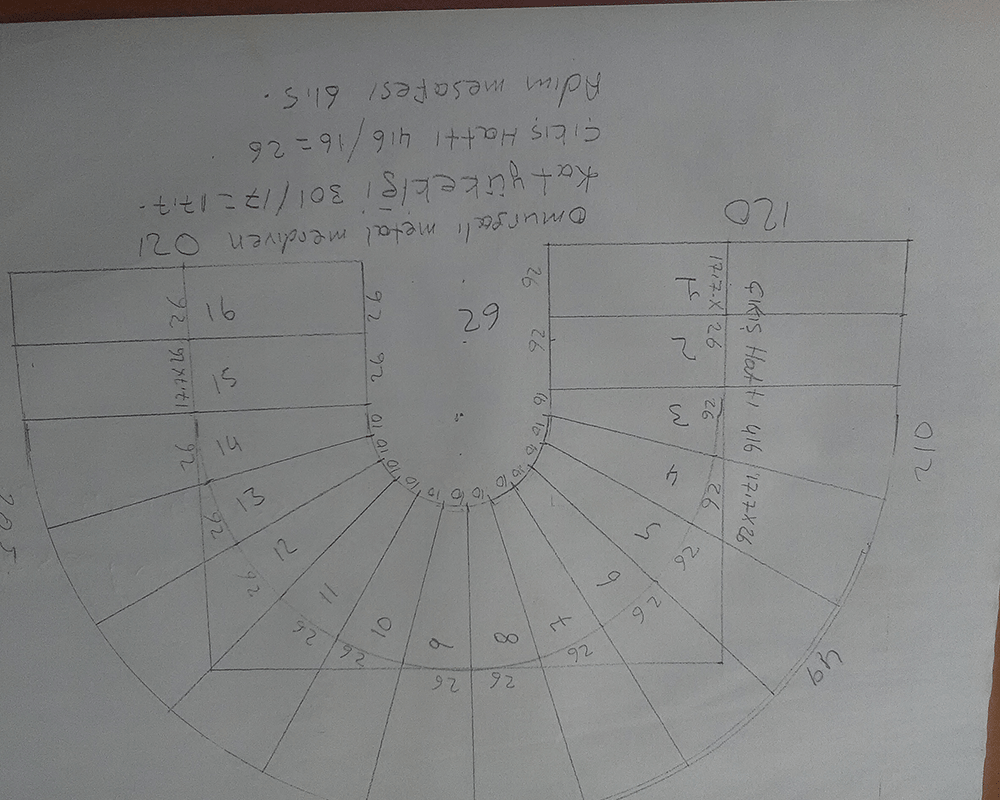 26 26
26 26
49
7 8 9 10
26 26
6 11
26 26
5 12
26 26
4 13
17,7x26
205
10 10 10 10 10 10 10 10 10 10
26
3 14
26
210
16
Çıkış Hattı 416
26
2 15
26 26
17,7x26
62
26
1 16
26 26
17,7x26
120
120
Omurgalı metal merdiven
Kat yükekliği 301/17=17,7.
Çıkış Hattı 416/16=26
Adım mesafesi 61,5.